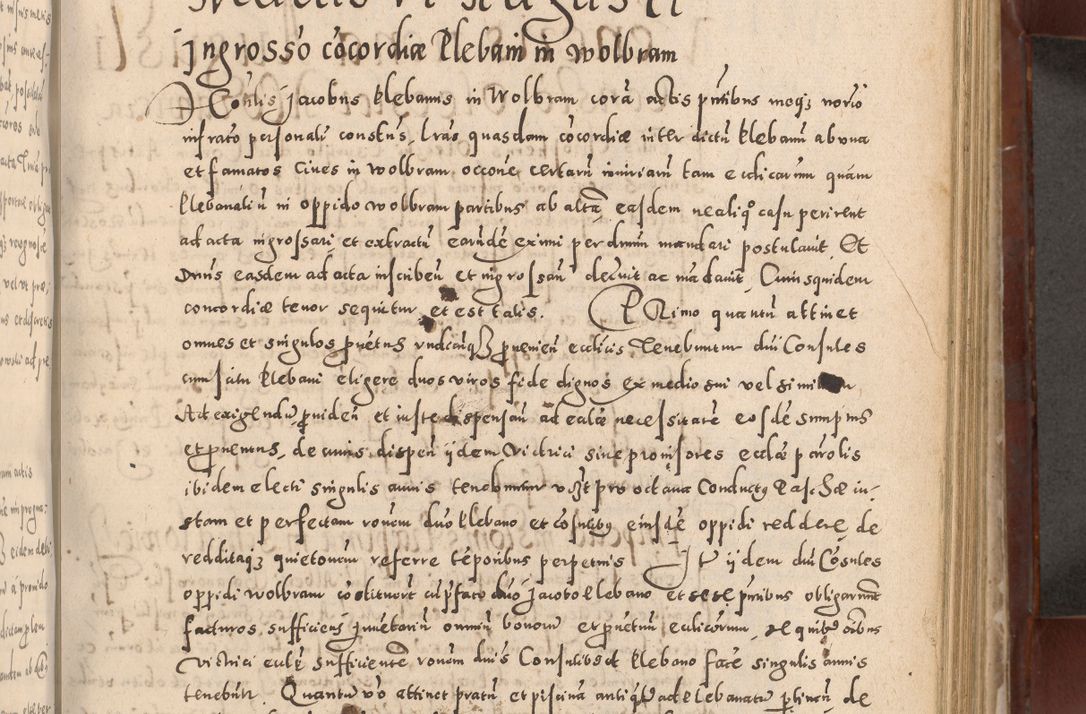 Ingrosso cocordiæ Plebani in Wolbram
Hoñlis Jacobus Plebanus in Wolbram corā actis pñtibus meqȝ norio
infrato personalr constus, lras quasdam cocordiæ inter dictū Plebanū ab vna
et famatos Ciues in Wolbram occone certarū iniuriarū tam ecclicarum quam
Plebanaliū in oppido Wolbram partibus ab altā, easdem ne aliqo casu perirent
ad acta ingrossari et extractū earūdē eximi per dnūm mandari postulauit. Et
Dnus easdem ad acta inscribeñ et ingrossañ decreuit ac mādauit, Cuiusquidem
concordiæ tenor sequitur et est talis. PRimo quantū attinet
omnes et singulos puetus vndicūqȝ prouenieñ ecclicis Tenebuntur dñi Consules
cum scitu Plebani eligere duos viros fide dignos ex medio sui vel
Ad exigendū puideñ et iuste dispensañ ad ealæ necessitatē eosdē sumptus
et prouentus, de cuius dispeñ ijdem Victrici siue prouisores ecclæ parolis
ibidem electi singulis annis tenebuntur vȝt pro octaua Conductȝ Paschæ iu-
stam et perfectam ronem dño Plebano et cosulibȝ eiusdē oppidi reddere, de
redditaqȝ quietonem referre tēporibus perpetuis It ijdem dñi Cosules
oppidi Wolbram costituert cū pfato dño Jacobo Plebano et sese pñtibus obligarunt
facturos sufficiens Inuetariū omniū bonorū et puetuū ecclicorum, de quibȝ oībus
Victrici ecclē sufficientē ronem dñis Consulibȝ et Plebano fare singulis annis
tenebūt. Quantū vo attinet pratū et piscinā antiqtȝ ad Plebanatū ptineñ de